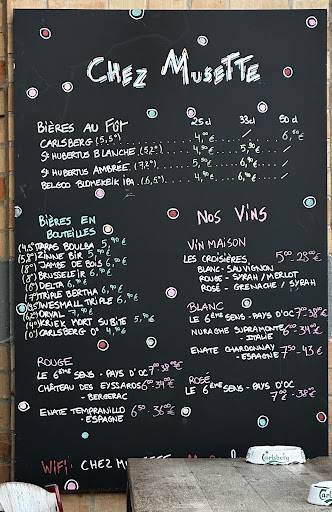 CHEZ MUSETTE
BIÈRES AU FÛT 25cl 33cl 50cl
CARLSBERG (5,5°) 4,00€ / 6,50€
St HUBERTUS BLANCHE (5,2°) 5,50€ /
St HUBERTUS AMBRÉE (7,2°) 5,50€ /
BELGOO BLOMEKEIK IPA (6,5°) 4,90€ 6,90€ /
BIÈRES EN BOUTEILLES
(4,5°) TARAS BOULBA 5,90€
(5,8°) ZINNE BIR 5,90€
(8°) JAMBE DE BOIS 6,90€
(8°) BRUSSELEIR 6,90€
(6°) DELTA 6,90€
(7°) TRIPLE BERTHA 6,90€
WESMALL TRIPLE 6,90€
ORVAL 7,90€
KRIEK MORT SUBITE 5,90€
(0°) CARLSBERG 0° 4,90€
NOS VINS
VIN MAISON
LES CROISIÈRES 5,00 23,00€
BLANC - SAUVIGNON
ROUGE - SYRAH/MERLOT
ROSÉ - GRENACHE/SYRAH
BLANC
LE 6ÈME SENS - PAYS D'OC 7,00 38,00€
NURAGHE SUPRAMONTE 34€
- ITALIE
ENATE CHARDONNAY 7,50 - 43€
- ESPAGNE
ROUGE
LE 6ÈME SENS - PAYS D'OC 7,00 38,00€
CHÂTEAU DES EYSSARDS 6,00 34€
- BERGERAC
ENATE TEMPRANILLO 6,50 - 36,00€
- ESPAGNE
ROSÉ
LE 6ÈME SENS - PAYS D'OC
7,00 - 38€
WIFI: CHEZ
Carlsberg